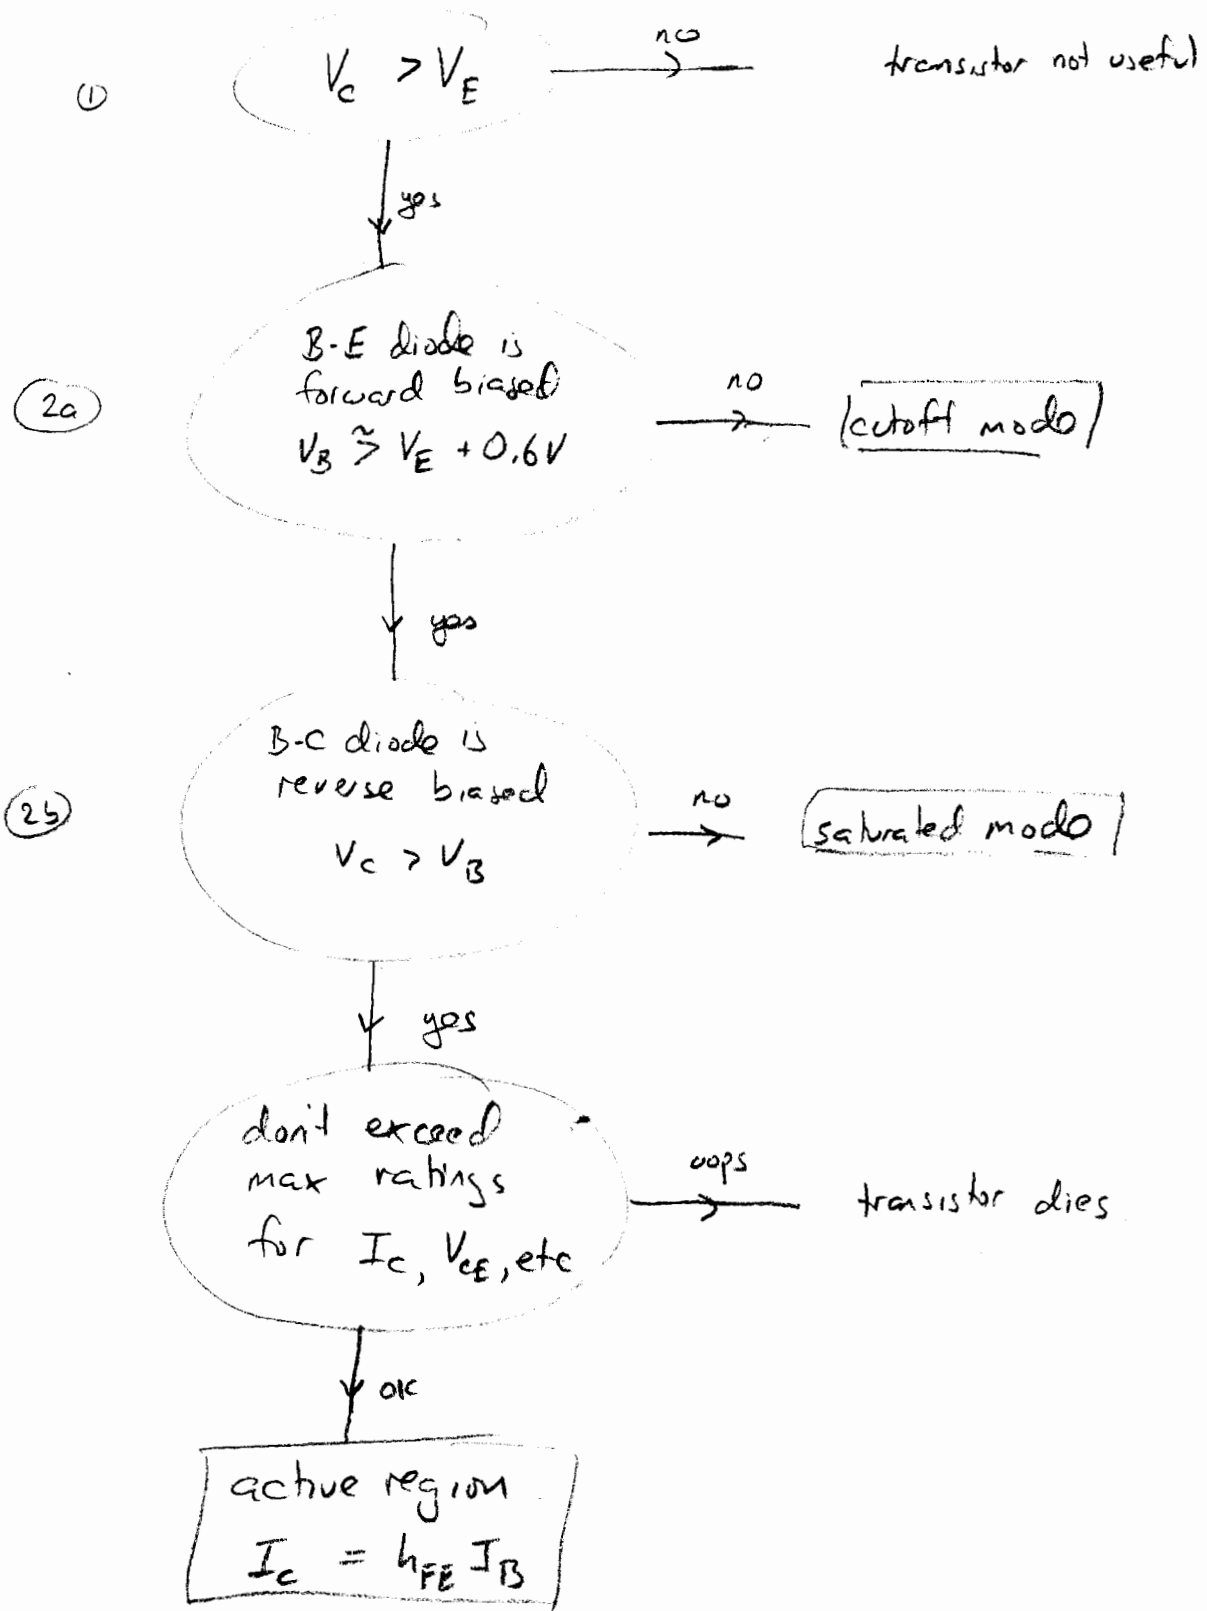 ① V_C > V_E no transistor not useful
yes
B-E diode is
forward biased
2a V_B ≳ V_E + 0.6V no cutoff mode
yes
B-C diode is
reverse biased
2b V_C > V_B no saturated mode
yes
don't exceed
max ratings
for I_C, V_CE, etc oops transistor dies
OK
active region
I_C = h_FE I_B